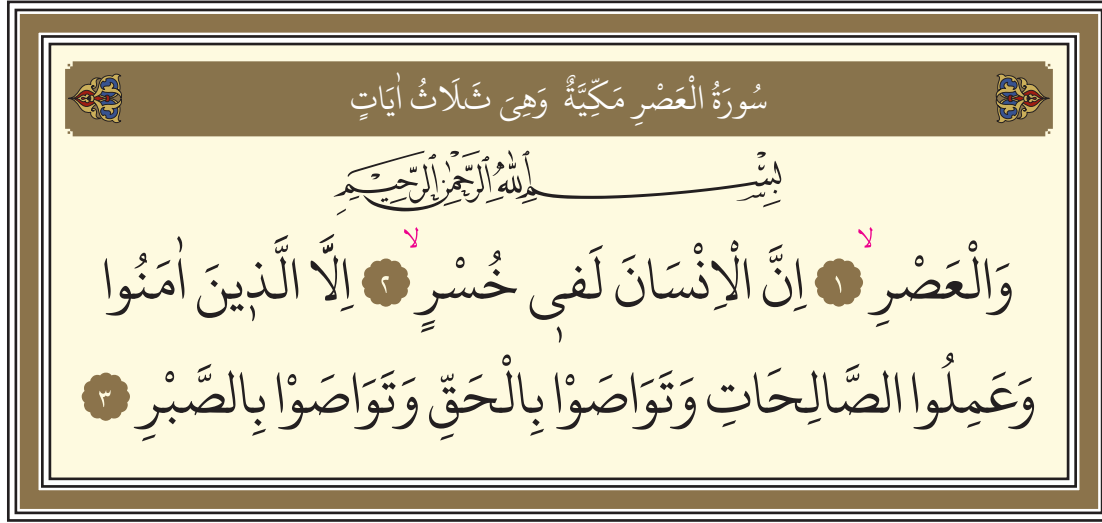 سُورَةُ الْعَصْرِ مَكِّيَّةٌ وَهِىَ ثَلَاثُ اٰيَاتٍ
بِسْمِ اللّٰهِ الرَّحْمٰنِ الرَّحِيمِ
وَالْعَصْرِۙ ﴿١﴾ اِنَّ الْاِنْسَانَ لَفٖى خُسْرٍۙ ﴿٢﴾ اِلَّا الَّذٖينَ اٰمَنُوا
وَعَمِلُوا الصَّالِحَاتِ وَتَوَاصَوْا بِالْحَقِّ وَتَوَاصَوْا بِالصَّبْرِ ﴿٣﴾